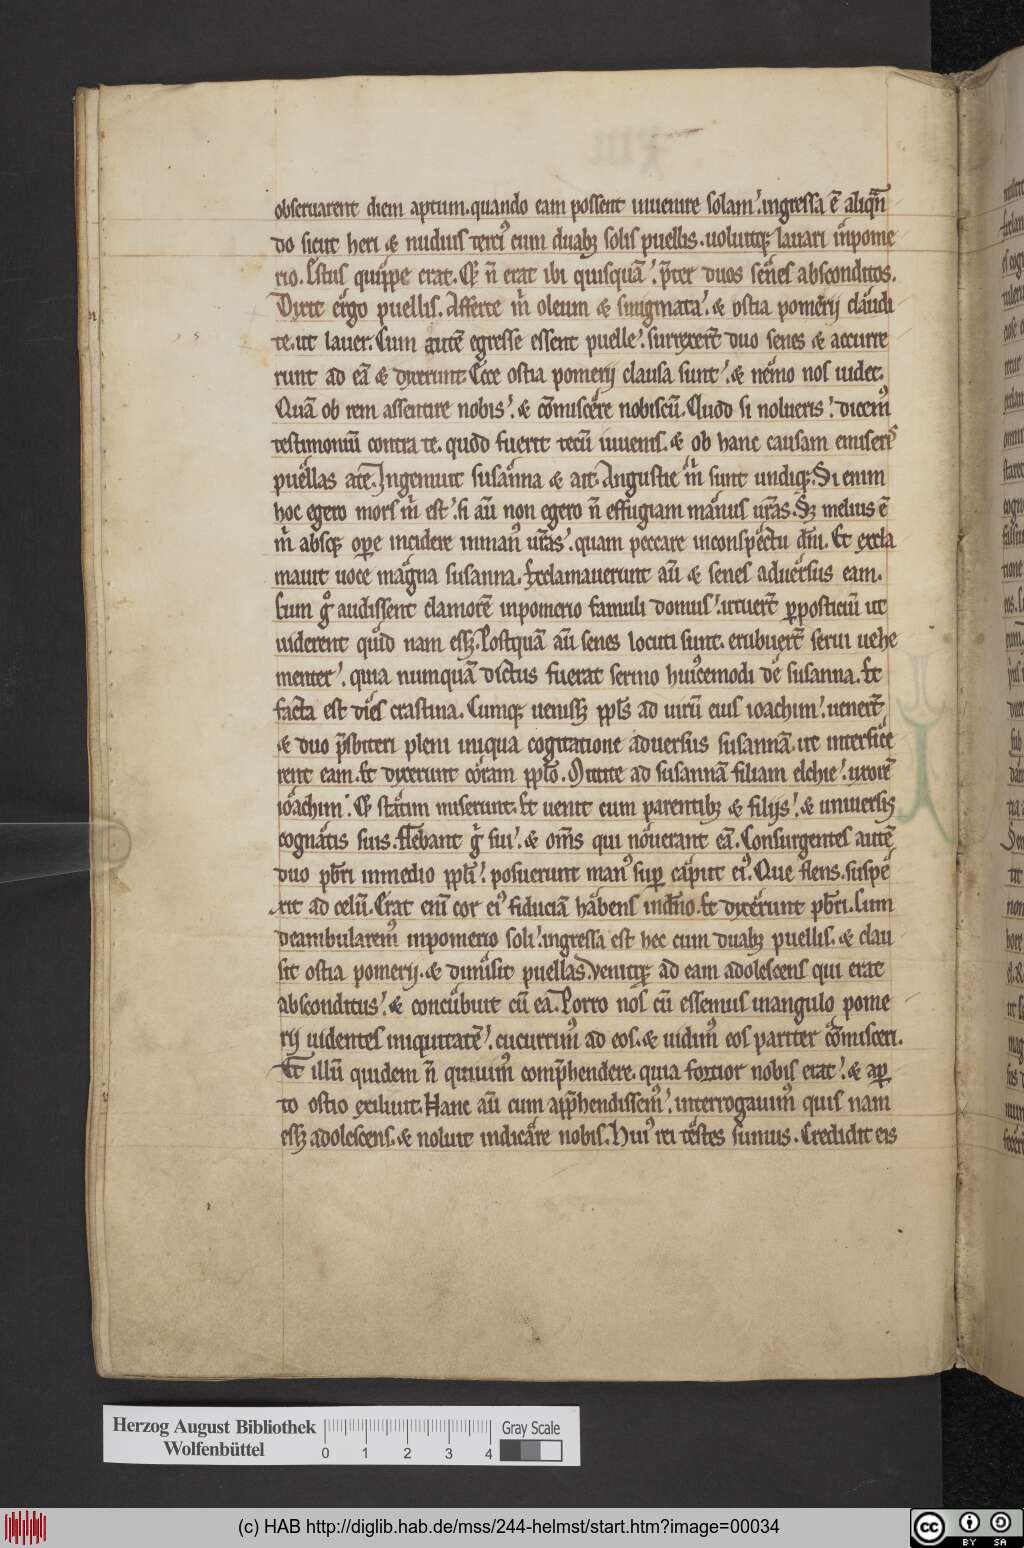 obseruarent diem aptum. quando eam possent inuenire solam. ingressa ē aliqn̄
do sicut heri & nudius terciꝰ cum duabꝫ solis puellis. uoluitqꝫ lauari inpome
rio. Estus quippe erat. Et n̄ erat ibi quisquā. p̄ter duos senes absconditos.
Dixit ergo puellis. Afferte m̄ oleum & smigmata. & ostia pomerij claudi
te. ut lauer. Cum autē egresse essent puelle. surrexerūt duo senes & accurre
runt ad eā & dixerunt. Ecce ostia pomerij clausa sunt. & nemo nos uidet.
Quā ob rem assentire nobis. & cōmiscere nobiscū. Quod si nolueris. dicemꝰ
testimoniū contra te. quod fuerit tecū iuuenis. & ob hanc causam emiseris
puellas ate. Ingemuit susanna & ait. Angustie m̄ sunt undiqꝫ. Si enim
hoc egero mors m̄ est. si aū non egero n̄ effugiam manus ur̄as. Sꝫ melius ē
m̄ absqꝫ oꝑe incidere inmanꝰ ur̄as. quam peccare inconspectu dn̄i. Et excla
mauit uoce magna susanna. Exclamauerunt aū & senes aduersus eam.
Cum gͦ audissent clamorē inpomerio famuli domus. irruerūt ꝑposticiū ut
uiderent quid nam essꝫ. Postquā aū senes locuti sunt. erubuerūt serui uehe
menter. quia numquā dictus fuerat sermo huiꝰcemodi de susanna. Et
facta est dies crastina. Cumqꝫ uenissꝫ ppl̄s ad uirū eius ioachim. uenerūt
& duo p̄sbiteri pleni iniqua cogitatione aduersus susannā. ut interfice
rent eam. Et dixerunt coram pplo. Mittite ad susannā filiam elchie. uxorē
ioachim. Et statim miserunt. Et uenit cum parentibꝫ & filijs. & uniuersis
cognatis suis. Flebant gͦ sui. & om̄s qui nouerant eā. Consurgentes autē
duo pb̄ri inmedio ppl̄i. posuerunt manꝰ suꝑ caput eiꝰ. Que flens. suspe
xit ad celū. Erat eni cor eiꝰ fiduciā habens indn̄o. Et dixerunt pb̄ri. Cum
deambularemꝰ inpomerio soli. ingressa est hec cum duabꝫ puellis. & clau
sit ostia pomerij. & dimisit puellas. Venitqꝫ ad eam adolescens qui erat
absconditus. & concubuit cū ea. Porro nos cū essemus inangulo pome
rij uidentes iniquitatē. cucurrimꝰ ad eos. & uidimꝰ eos pariter cōmisceri.
Et illū quidem n̄ quiuimꝰ comp̄hendere. quia fortior nobis erat. & aꝑ
to ostio exiliuit. Hanc aū cum app̄hendissemꝰ. interrogauimꝰ quis nam
essꝫ adolescens. & noluit indicare nobis. Huiꝰ rei testes sumus. Credidit eis
Herzog August Bibliothek
Wolfenbüttel
0 1 2 3 4
Gray Scale
(c) HAB http://diglib.hab.de/mss/244-helmst/start.htm?image=00034
cc BY SA